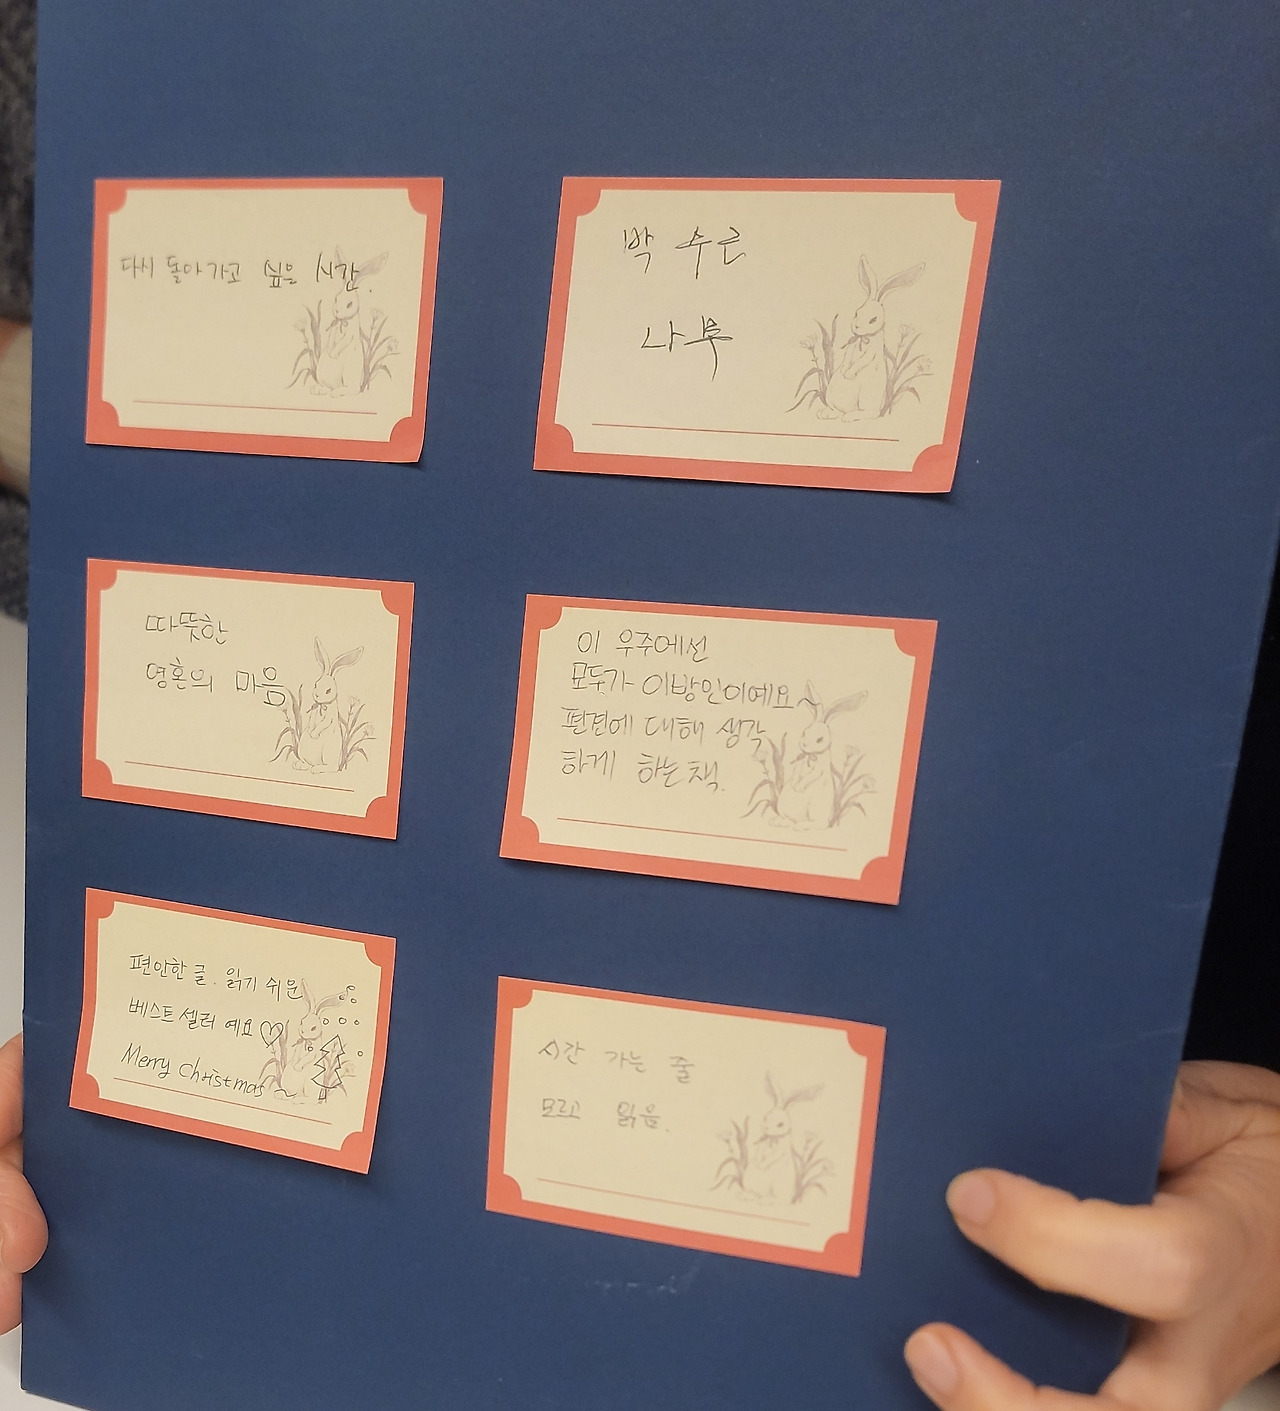 다시 돌아가고 싶은 시간.
박수근
나무
따뜻한
영혼의 마음
이 우주에선
모두가 이방인이예요~
편견에 대해 생각
하게 하는 책.
편안한 글. 읽기 쉬운
베스트셀러 예요♡
Merry Christmas~
시간 가는 줄
모르고 읽음.